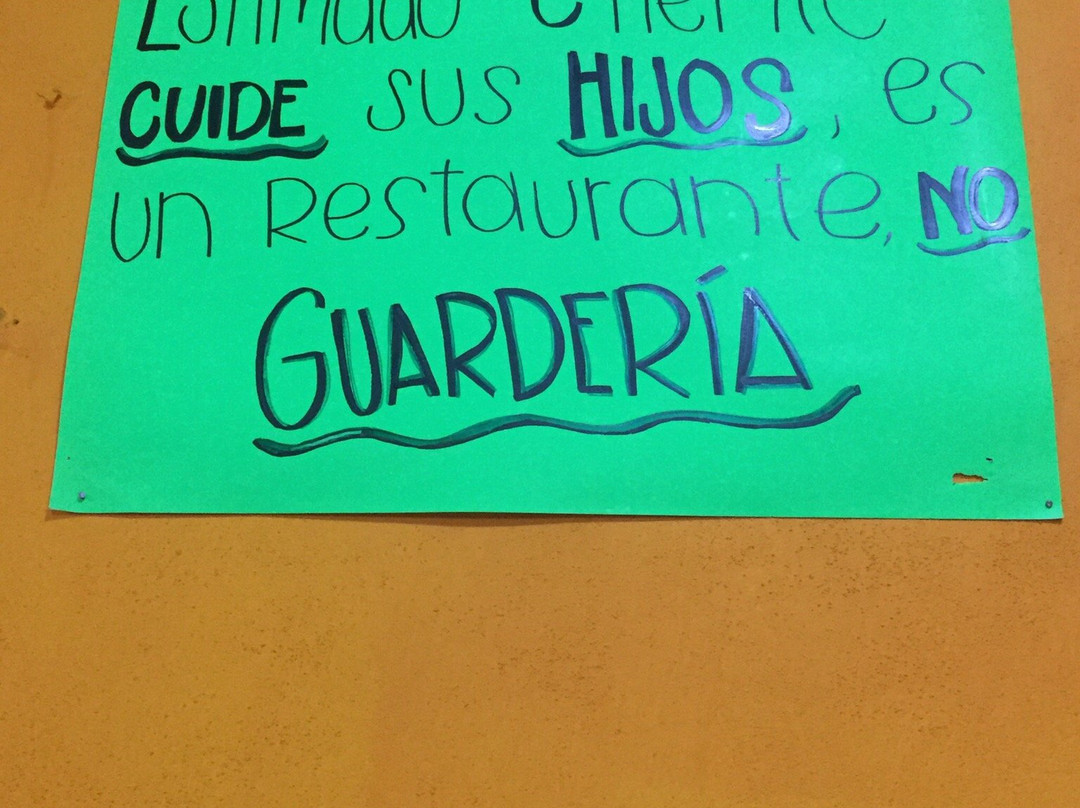 Estimado Cliente
CUIDE sus HIJOS, es
un Restaurante, NO
GUARDERÍA